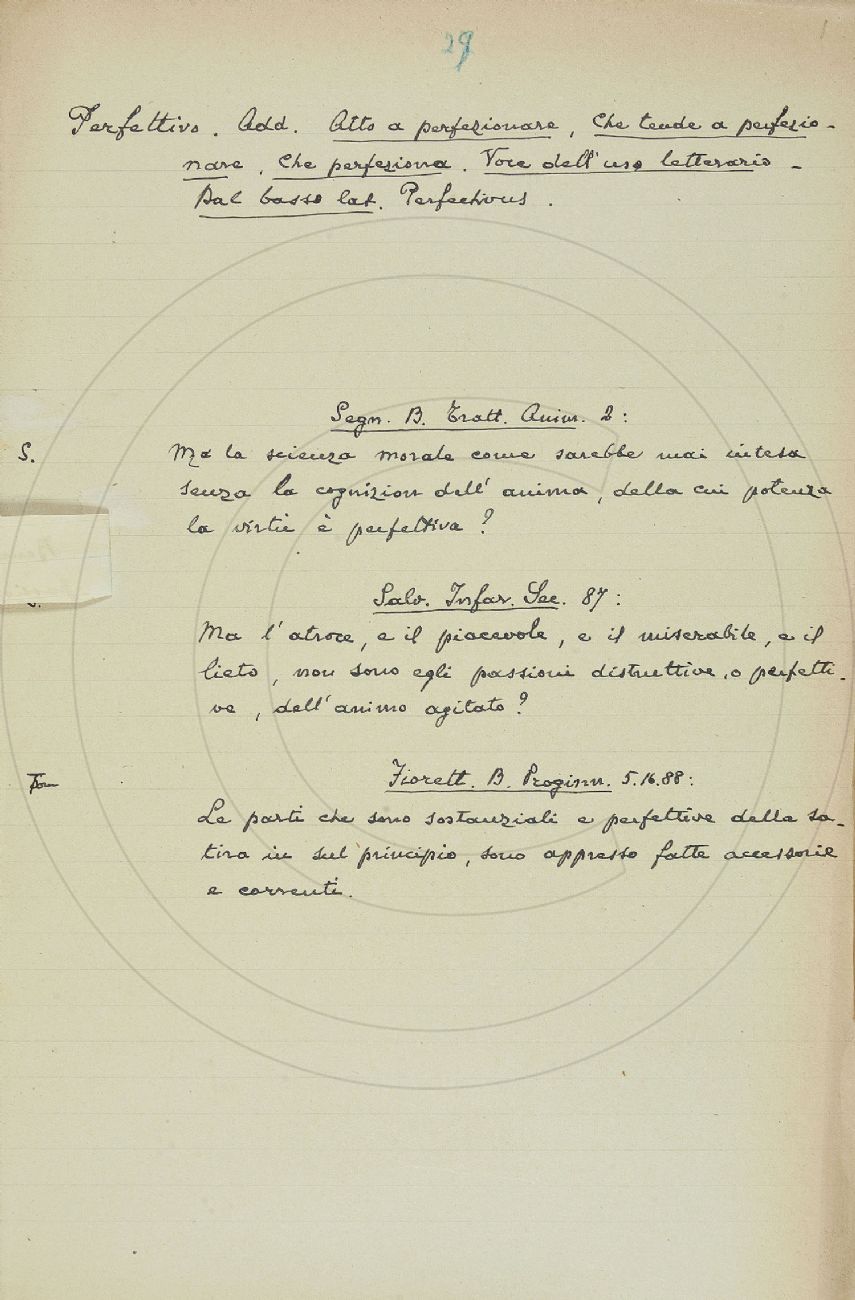 29
Perfettivo. Add. Atto a perfezionare, Che tende a perfezio-
nare, Che perfeziona. Voce dell'uso letterario -
Dal basso lat. Perfectivus.
Segn. B. Tratt. Anim. 2:
S.
Ma la scienza morale come sarebbe mai intesa
senza la cognizion dell'anima, della cui potenza
la virtù è perfettiva?
Salv. Infar. Sec. 87:
Ma l'atroce, e il piacevole, e il miserabile, e il
lieto, non sono egli passioni distruttive, o perfetti-
ve, dell'animo agitato?
Fiorett. B. Proginn. 5.16.88:
Le parti che sono sostanziali e perfettive della sa-
tira in sul principio, sono appresso fatte accessorie
e correnti.